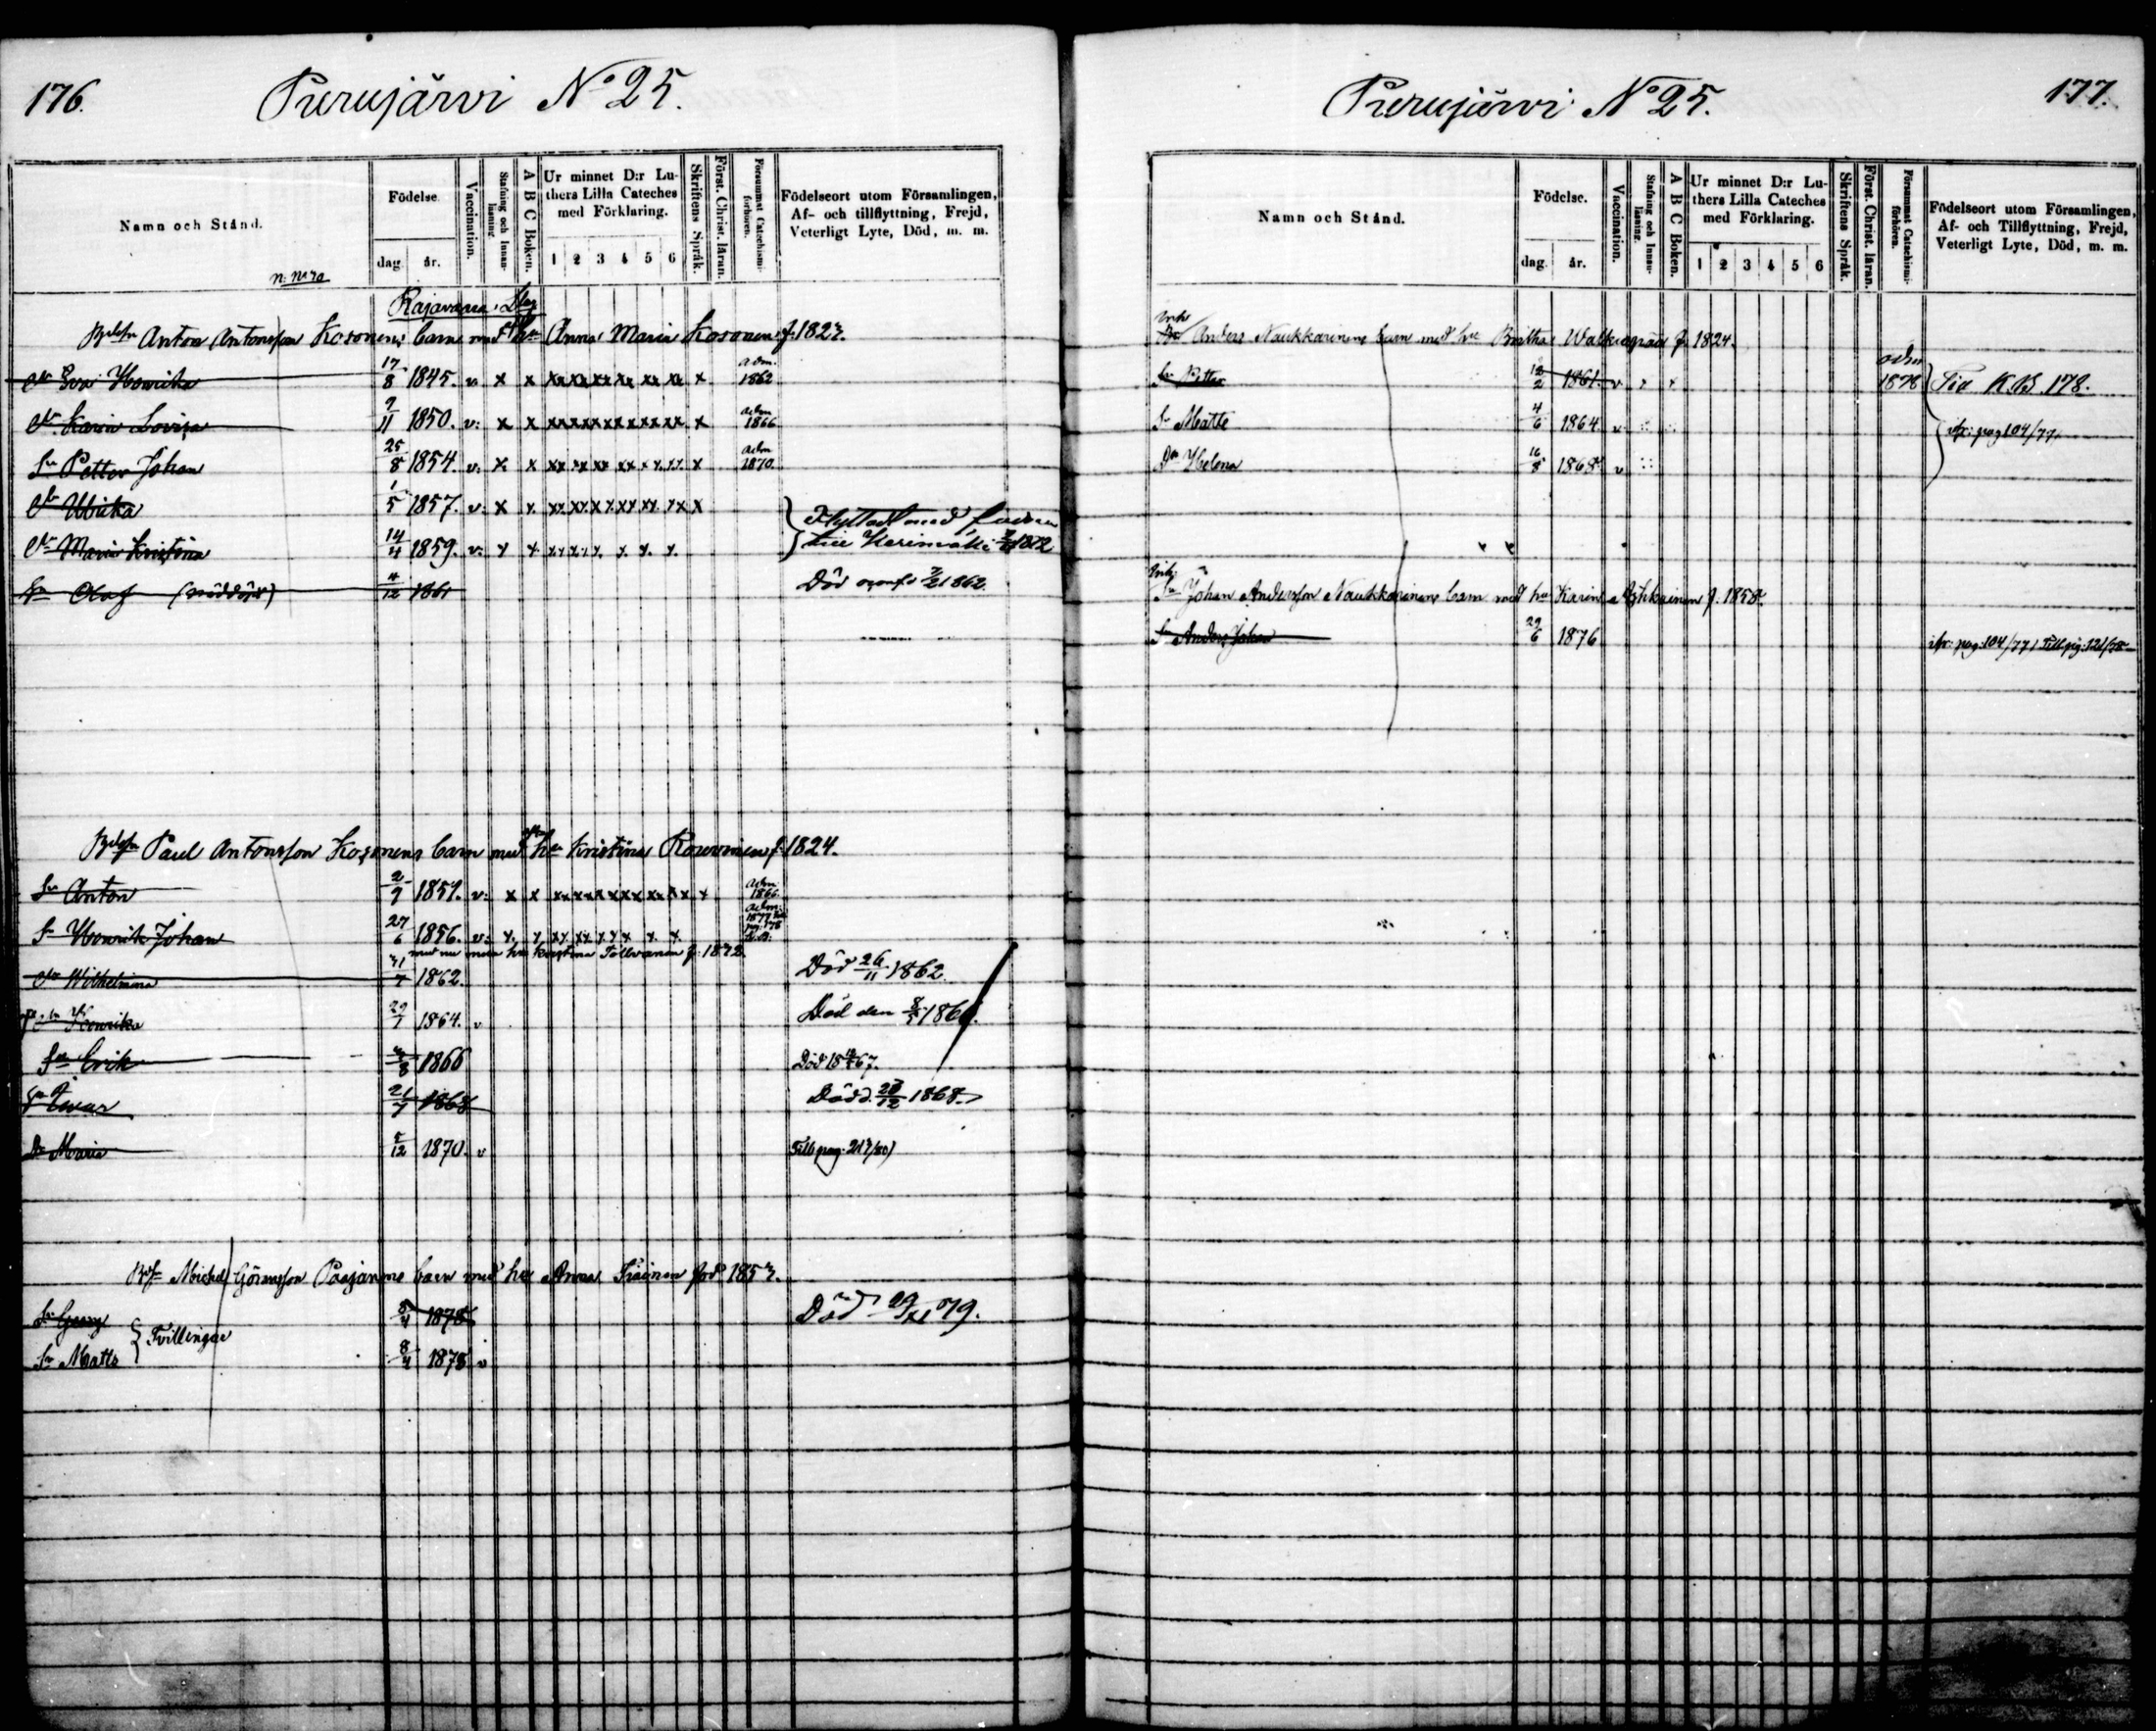 176.
Purujärvi No 25.
Namn och Stånd.
Födelse.
dag.
år.
Vaccination.
Stafning och Innanläsning.
A B C Boken.
Ur minnet D:r Luthers Lilla Cateches med Förklaring.
1 2 3 4 5 6
Skriftens Språk.
Först. Christ. läran.
Försummat Catechismiförhören.
Födelseort utom Församlingen, Af- och tillflyttning, Frejd, Veterligt Lyte, Död, m. m.
Rajavaara
Anton Antonsson Kosonens barn med hu Anna Maria Kosonen f. 1823.
Dr Eva Henrika 17/8 1845. v x x xx xx xx xx xx xx x adm. 1862
Dr Karin Lovisa 9/11 1850. v: x x xx xx xx xx xx xx x adm 1866
Sn Petter Johan 25/8 1854. v: x x xx xx xx xx x x xx x adm 1870.
Dr Ulrika 1/5 1857. v: x x xx xx xx xx xx xx x
Flyttad med fadren
Dr Maria Kristina 14/4 1859. v: x x xx xx x x x
Kerimäki 1872
Sn Olaf (nöddöpt) 4/12 1861 Död 1862.
Paul Antonsson Kosonens barn med hu Kristina f. 1824.
Sn Anton 2/9 1851. v: x x xx xx xx xx xx xx x adm 1866.
Sn Henrik Johan 27/6 1856. v: x x xx xx xx x x x adm: 1877
med hu Kristina f. 1832.
Dr Wilhelmina 31/7 1862. Död 26/11 1862.
Henrika 29/7 1864. v Död den 8/5 1866.
Sn Erik 1866 Död 67.
Sn Ivar 21/7 1868 Död d. 28/12 1868.
Dr Maria 5/12 1870. v Till pag. 213/80)
Michel Göransson Paajanens barn med hu Anna född 1853.
Sn Georg 8/4 1878 Död 29/XI 79.
Tvillingar
Sn Matts 8/4 1878 v
Purujärvi No 25.
177.
Namn och Stånd.
Födelse.
dag.
år.
Vaccination.
Stafning och Innanläsning.
A B C Boken.
Ur minnet D:r Luthers Lilla Cateches med Förklaring.
1 2 3 4 5 6
Skriftens Språk.
Först. Christ. läran.
Försummat Catechismiförhören.
Födelseort utom Församlingen, Af- och Tillflyttning, Frejd, Veterligt Lyte, Död, m. m.
Inh
Anders Naukkarinens barn med hu Birtha f. 1824.
Sn Petter 12/2 1861. v adm 1878 K.B. 178.
Sn Matts 4/6 1864. v pag 104/77.
Dr Helena 16/8 1868. v
Inh:
Sn Johan Andersson Naukkarinens barn med hu Karin f. 1858.
Sn Anders Johan 29/6 1876 pag: 104/77 Till pag: 121/78